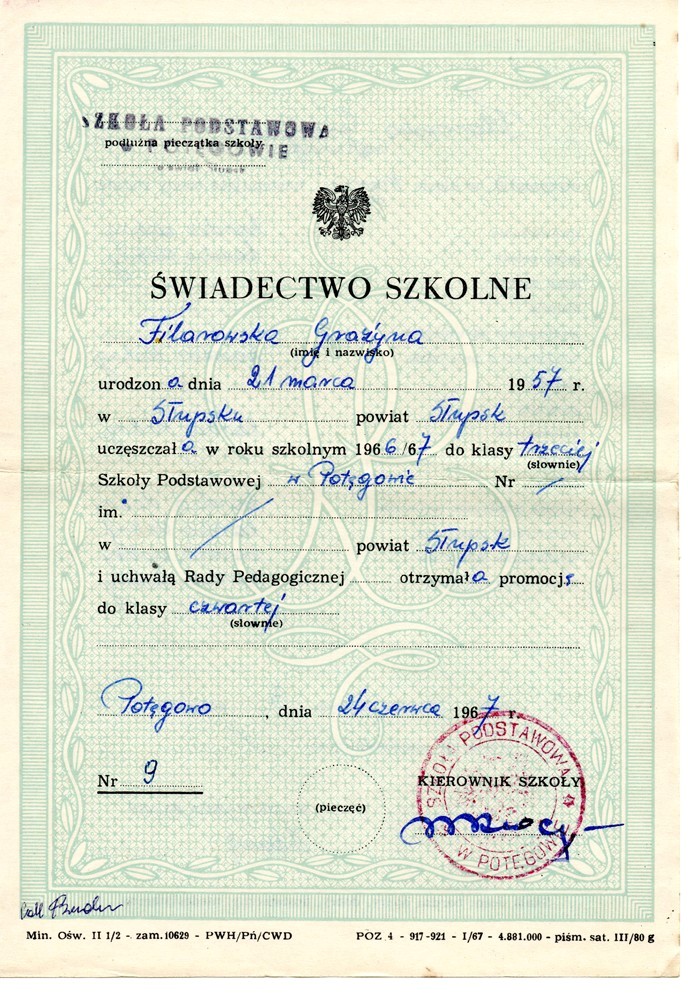 SZKOŁA PODSTAWOWA
podłużna pieczątka szkoły
W POTĘGOWIE
ŚWIADECTWO SZKOLNE
Filarowska Grażyna
(imię i nazwisko)
urodzona dnia 21 marca 1957 r.
w Słupsku powiat Słupsk
uczęszczała w roku szkolnym 1966/67 do klasy trzeciej
(słownie)
Szkoły Podstawowej w Potęgowie Nr /
im. /
w powiat Słupsk
i uchwałą Rady Pedagogicznej otrzymała promocję
do klasy czwartej
(słownie)
Potęgowo, dnia 24 czerwca 1967 r.
SZKOŁA PODSTAWOWA
Nr 9
KIEROWNIK SZKOŁY
(pieczęć)
W POTĘGOWIE
Min. Ośw. II 1/2 - zam. 10629 - PWH/Pń/CWD POZ 4 - 917-921 - I/67 - 4.881.000 - piśm. sat. III/80 g